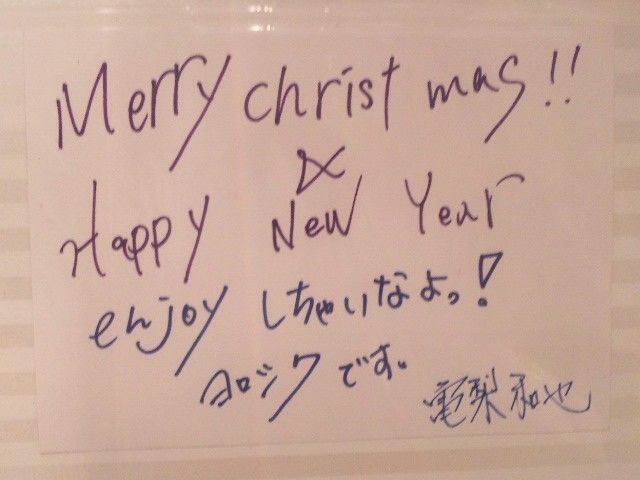 Merry christmas!!
&
Happy New Year
enjoy しちゃいなよっ!
ヨロシクです。
亀梨和也